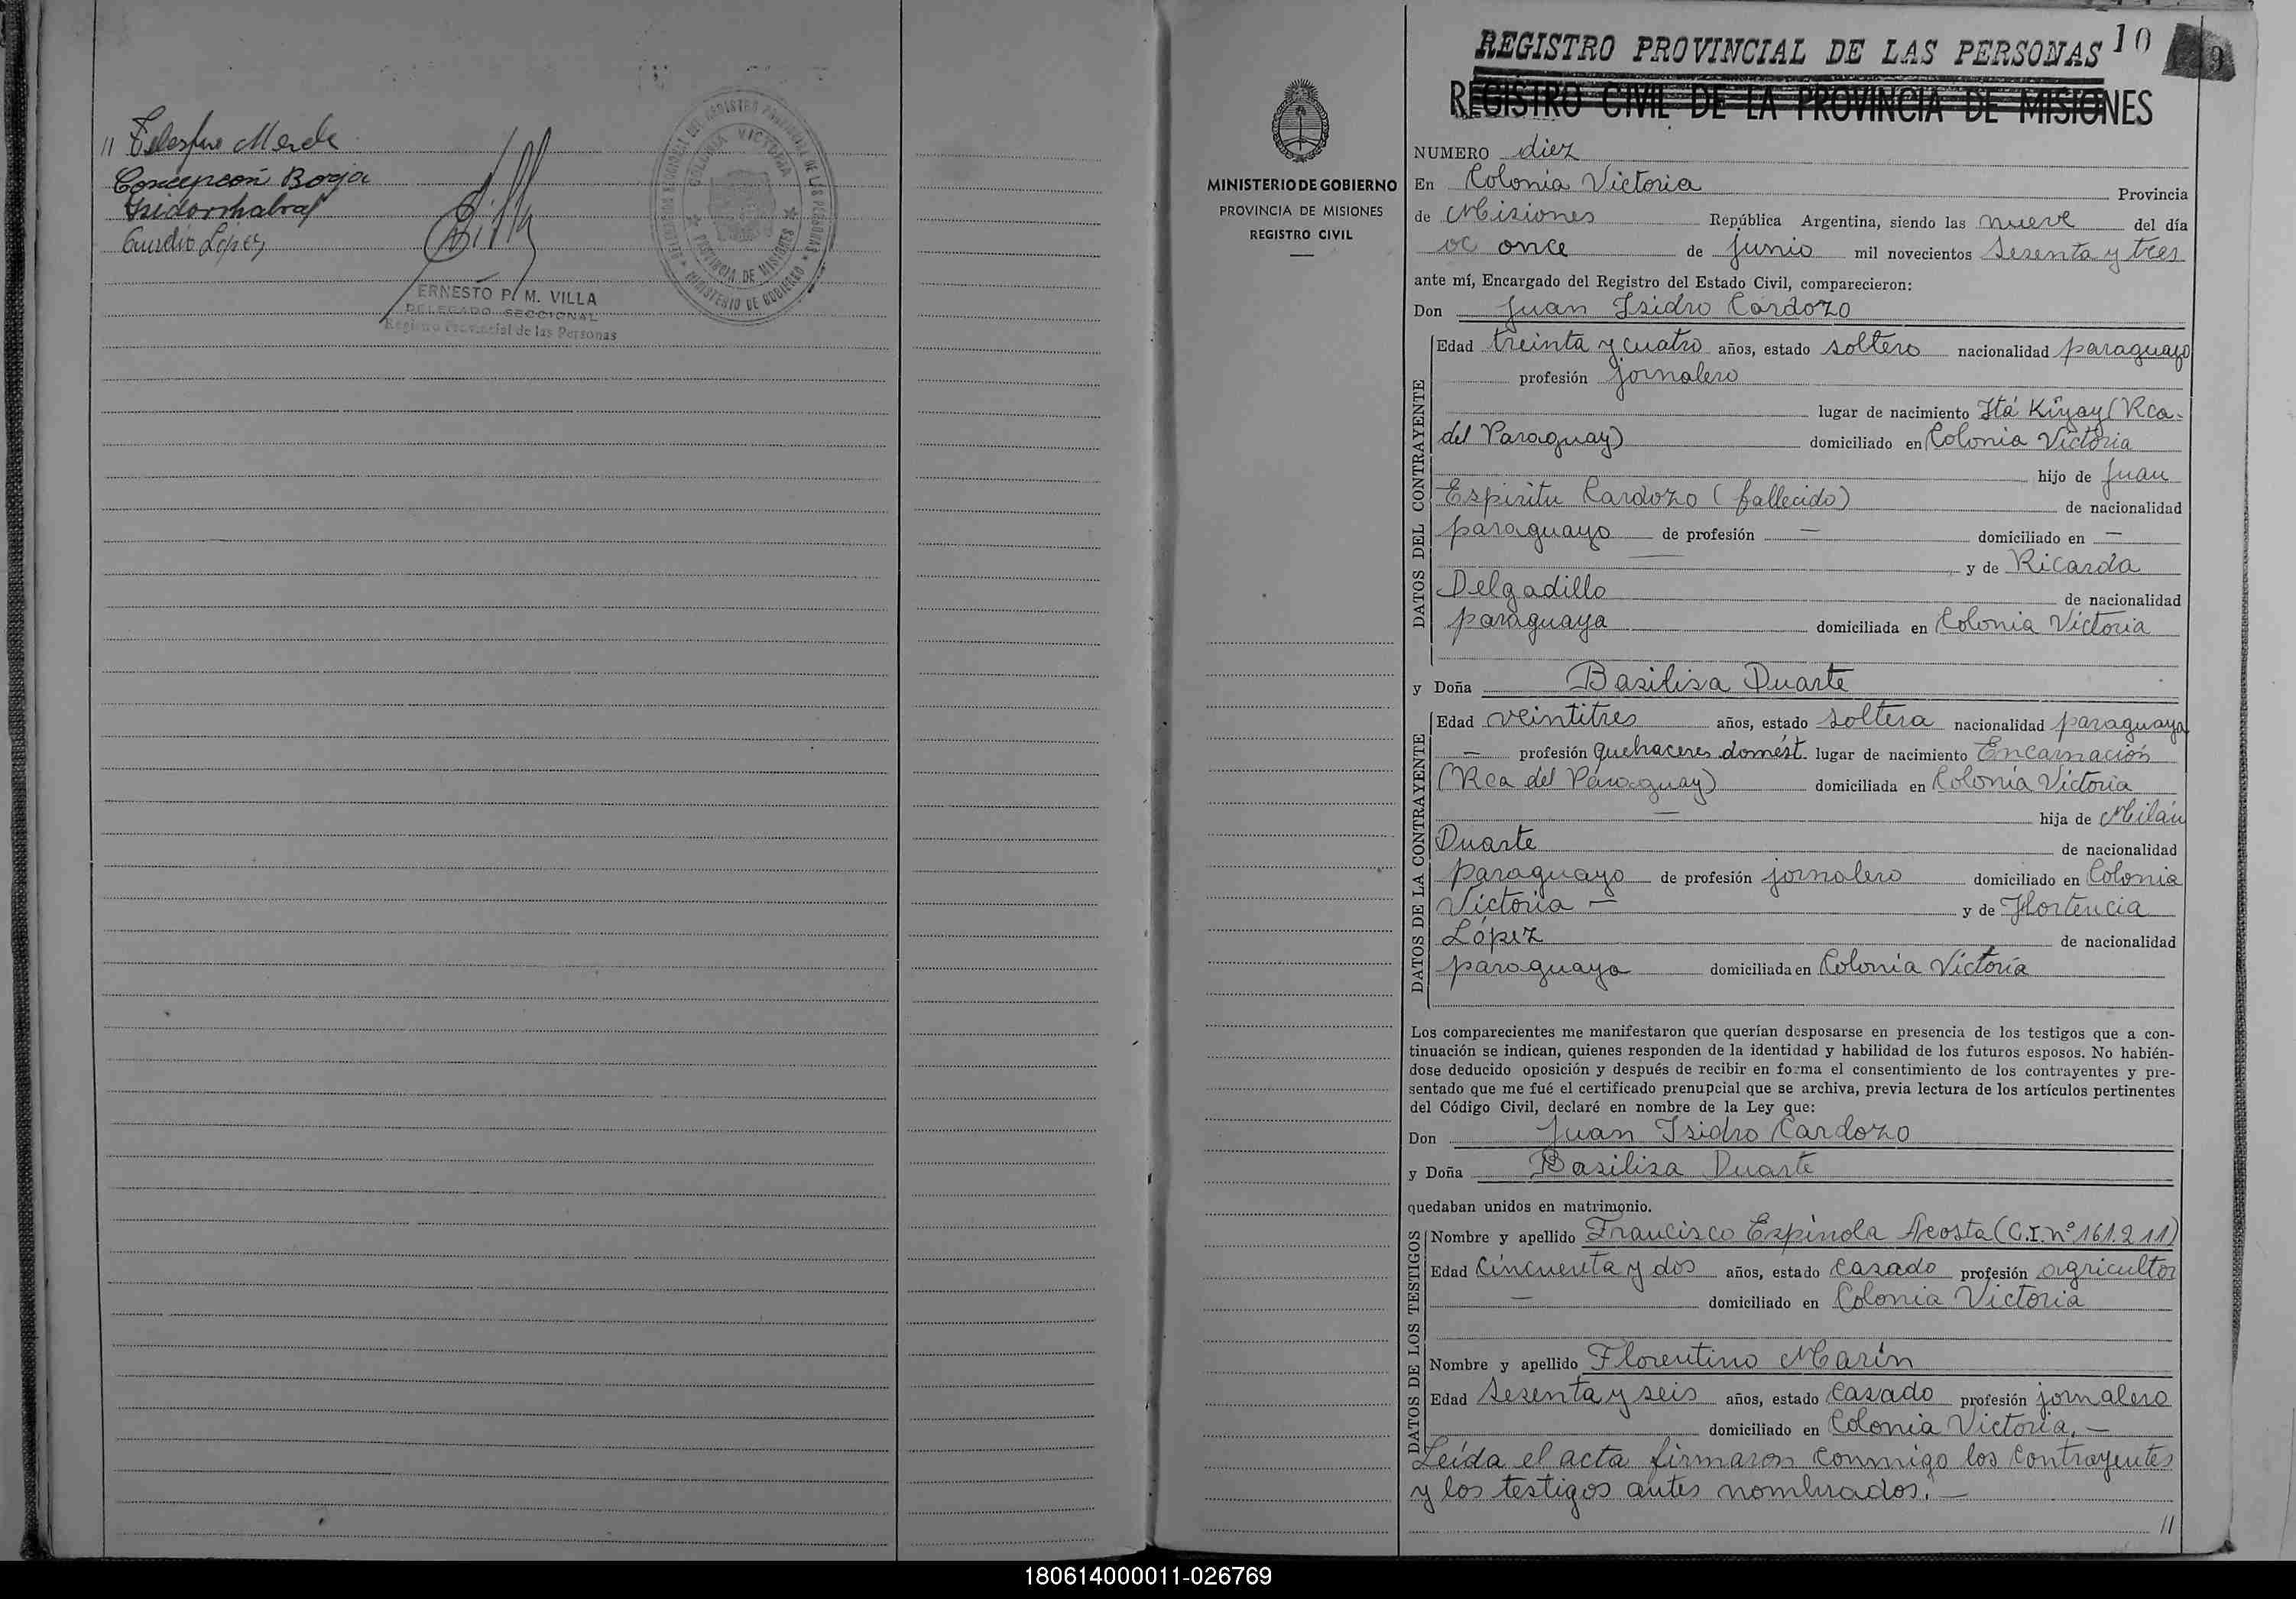 Concepción Borja
Aurelio López
ERNESTO P. M. VILLA
DELEGADO SECCIONAL
Registro Provincial de las Personas
COLONIA VICTORIA
PROVINCIA DE MISIONES
MINISTERIO DE GOBIERNO
REGISTRO PROVINCIAL DE LAS PERSONAS
10
9
REGISTRO CIVIL DE LA PROVINCIA DE MISIONES
MINISTERIO DE GOBIERNO
PROVINCIA DE MISIONES
REGISTRO CIVIL
NUMERO diez
En Colonia Victoria Provincia
de Misiones República Argentina, siendo las nueve del día
once de junio mil novecientos sesenta y tres
ante mí, Encargado del Registro del Estado Civil, comparecieron:
Don Juan Isidro Cardozo
DATOS DEL CONTRAYENTE
Edad treinta y cuatro años, estado soltero nacionalidad paraguayo
profesión jornalero
lugar de nacimiento Itá (Rca.
del Paraguay) domiciliado en Colonia Victoria
hijo de Juan
Espíritu Cardozo (fallecido) de nacionalidad
paraguayo de profesión — domiciliado en —
y de Ricarda
Delgadillo de nacionalidad
paraguaya domiciliada en Colonia Victoria
y Doña Basilisa Duarte
DATOS DE LA CONTRAYENTE
Edad veintitres años, estado soltera nacionalidad paraguaya
— profesión quehaceres domést. lugar de nacimiento Encarnación
(Rca del Paraguay) domiciliada en Colonia Victoria
— hija de Milán
Duarte de nacionalidad
paraguayo de profesión jornalero domiciliado en Colonia
Victoria — y de Hortencia
López de nacionalidad
paraguaya domiciliada en Colonia Victoria
Los comparecientes me manifestaron que querían desposarse en presencia de los testigos que a con-
tinuación se indican, quienes responden de la identidad y habilidad de los futuros esposos. No habién-
dose deducido oposición y después de recibir en forma el consentimiento de los contrayentes y pre-
sentado que me fué el certificado prenupcial que se archiva, previa lectura de los artículos pertinentes
del Código Civil, declaré en nombre de la Ley que:
Don Juan Isidro Cardozo
y Doña Basilisa Duarte
quedaban unidos en matrimonio.
DATOS DE LOS TESTIGOS
Nombre y apellido Francisco Espínola Acosta (C.I. nº 161.211)
Edad cincuenta y dos años, estado casado profesión agricultor
— domiciliado en Colonia Victoria
Nombre y apellido Florentino Marín
Edad sesenta y seis años, estado casado profesión jornalero
domiciliado en Colonia Victoria. —
Leída el acta firmaron conmigo los contrayentes
y los testigos antes nombrados. —
//
180614000011-026769